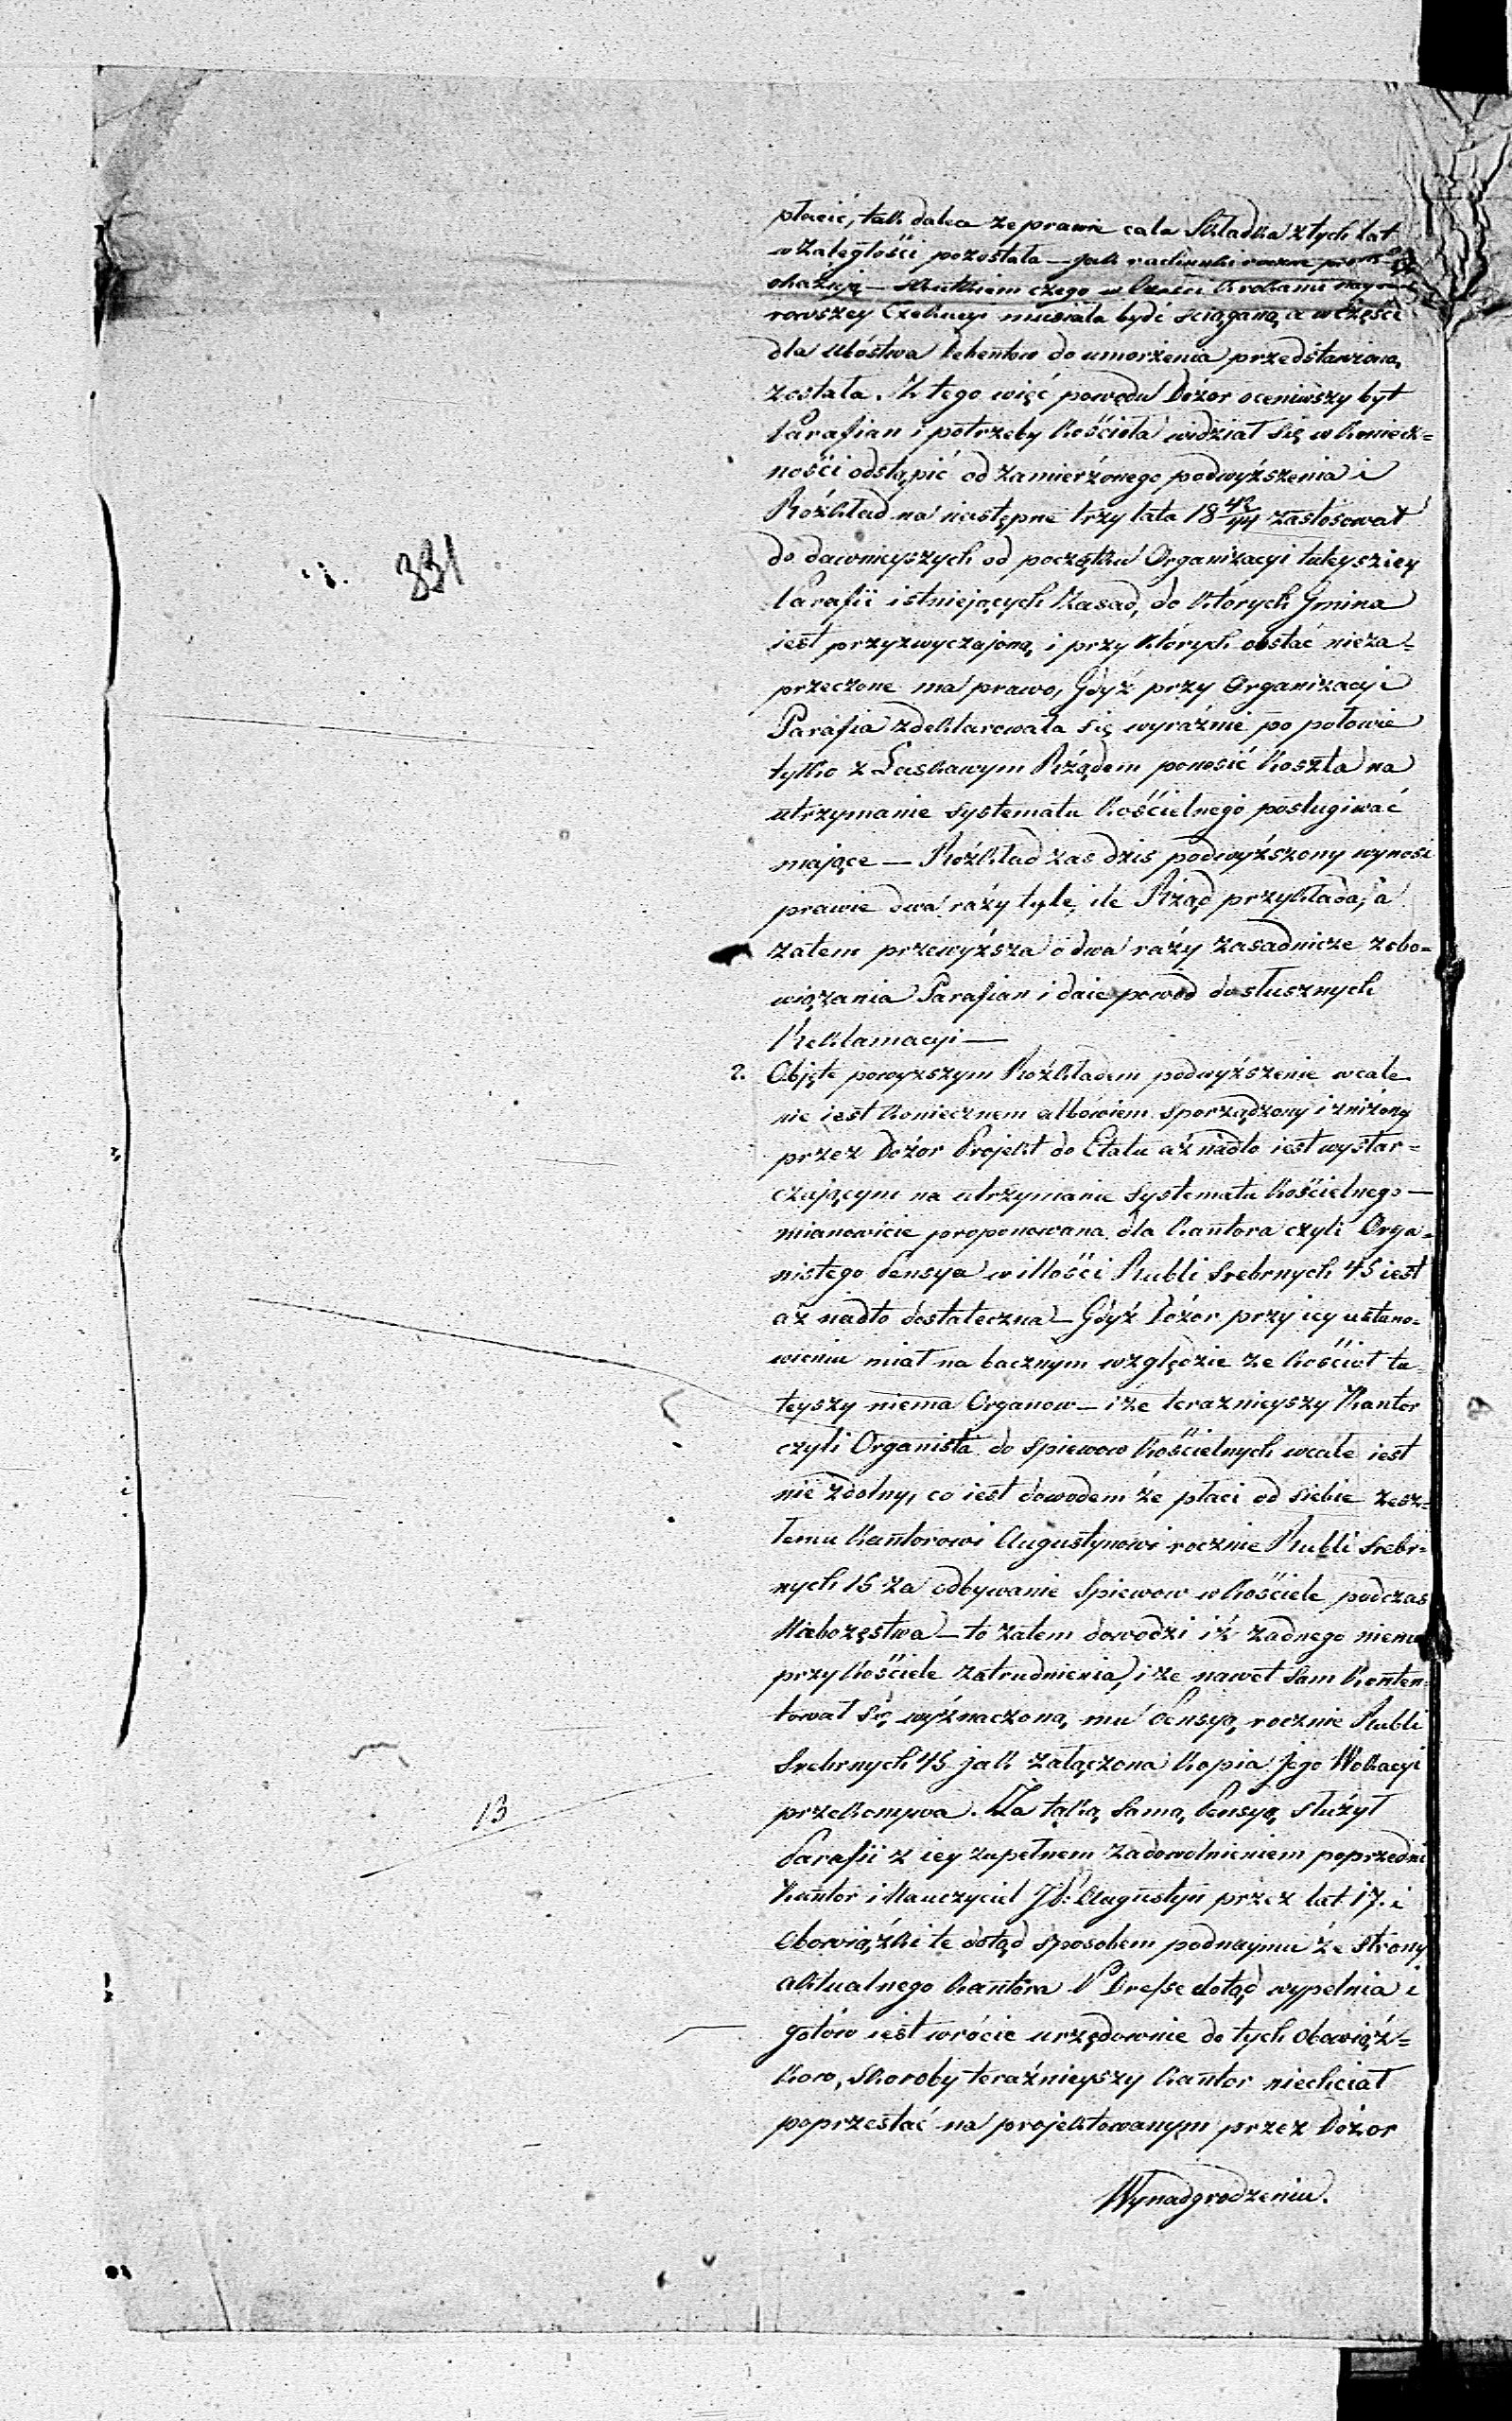 płacić, tak dalece że prawie cała Składka z tych lat
w zaległości pozostała — jak rachunki roczne
okazują — skutkiem czego w części krokami naysu-
rowszey Exekucyi musiała bydź ściąganą, a w części
dla ubóstwa Debentow do umorzenia przedstawioną
została. Z tego więc powodu Dozor oceniwszy byt
Parafian i potrzeby Kościoła widział się w koniecz=
ności odstąpić od zamierzonego podwyższenia i
Rozkład na następne trzy lata 18 42/44 zastosował
do dawnieyszych od początku Organizacyi tuteyszey
Parafii istniejących Zasad, do których Gmina
iest przyzwyczajoną, i przy których obstać nieza=
przeczone ma prawo, Gdyż przy Organizacyi
Parafia zdeklarowała się wyraźnie po połowie
tylko z Łaskawym Rządem ponosić koszta na
utrzymanie systematu Kościelnego posługiwać
mające — Rozkład zas dzis podwyższony wynosi
prawie dwa razy tyle, ile Rząd przykłada, a
zatem przewyższa o dwa razy zasadnicze zobo=
wiązania Parafian i daie powod do słusznych
Reklamacyi —
2. Objęte powyzszym Rozkładem podwyższenie wcale
nie iest koniecznem albowiem sporządzony i zniżony
przez Dozor Projekt do Etatu aż nadto iest wystar=
czającym na utrzymanie systematu Kościelnego —
mianowicie proponowana dla Kantora czyli Orga=
nistego Pensya w ilości Rubli Srebrnych 45 iest
aż nadto dostateczna — Gdyż Dozor przy iey ustano=
wieniu miał na bacznym względzie ze Kościoł tu=
teyszy niema Organow — i ze terażnieyszy Kantor
czyli Organista do spiewow Kościelnych wcale iest
nie zdolny, co iest dowodem że płaci od siebie zesz=
łemu Kantorowi Augustynowi rocznie Rubli Srebr=
nych 15 za odbywanie Spiewow w Kościele podczas
Nabożęstwa — to zatem dowodzi iż żadnego niema
przy Kościele zatrudnienia, i ze nawet sam konten=
tował się wyznaczoną mu Pensyą rocznie Rubli
Srebrnych 45 jak załączona Kopia Jego Wokacyi
przekonywa. Za taką samą Pensyą służył
Parafii z iey zupełnem zadowolnieniem poprzedni
Kantor i Nauczyciel JP: Augustyn przez lat 17. i
Obowiązki te dotąd sposobem podnaymu ze strony
aktualnego Kantora P. Drefse dotąd wypełnia i
gotów iest wrócić urzędownie do tych Obowiąz=
kow, skoroby teraźnieyszy Kantor niechciał
poprzestać na projektowanym przez Dozor
Wynadgrodzeniu.
331
13